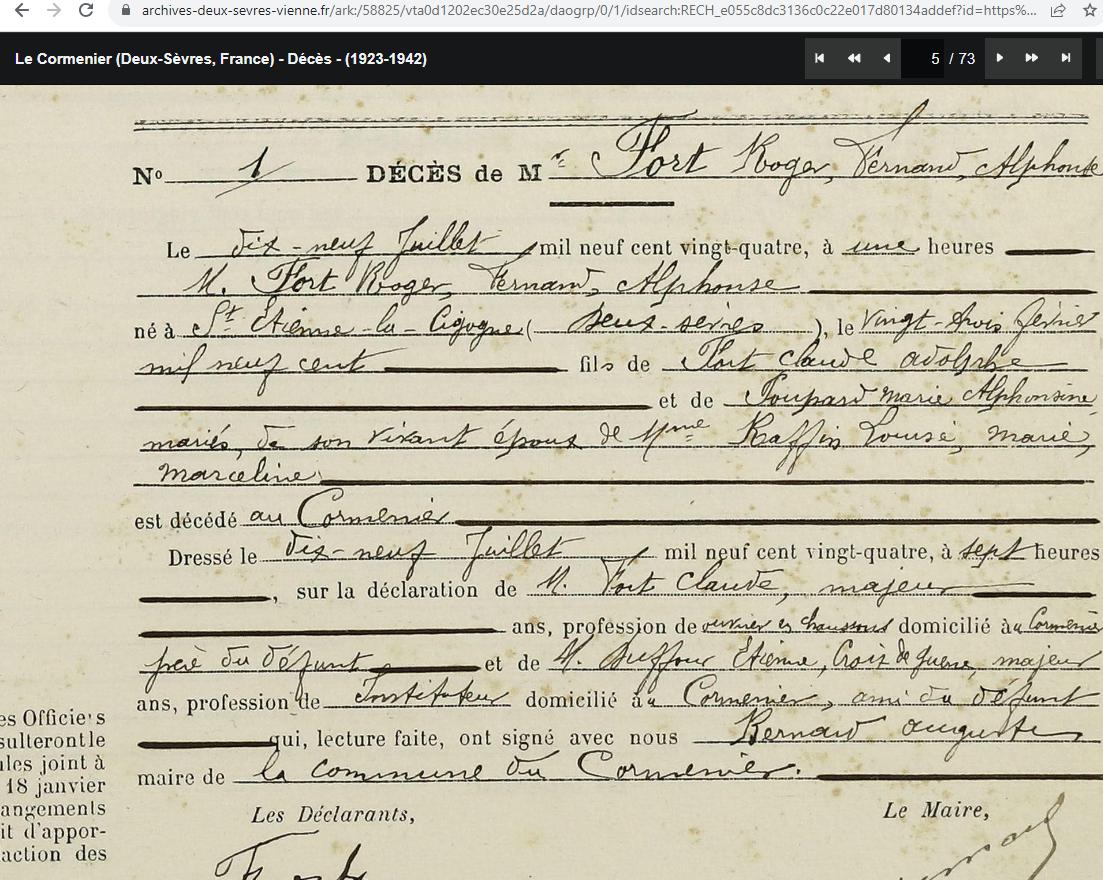 archives-deux-sevres-vienne.fr/ark:/58825/vta0d1202ec30e25d2a/daogrp/0/1/idsearch:RECH_e055c8dc3136c0c22e017d80134addef?id=https%...
Le Cormenier (Deux-Sèvres, France) - Décès - (1923-1942)
5 / 73
No 1 DÉCÈS de Mr Fort Roger, Fernand, Alphonse
Le dix-neuf Juillet mil neuf cent vingt-quatre, à une heures
M. Fort Roger, Fernand, Alphonse
né à St Etienne-la-Cigogne (Deux-sèvres), le vingt-trois février
mil neuf cent fils de Fort claude adolphe
et de Poupard marie Alphonsine
mariés, de son vivant époux de Mme Raffin Louise, marie,
marceline
est décédé au Cormenier
Dressé le dix-neuf Juillet mil neuf cent vingt-quatre, à sept heures
, sur la déclaration de M. Fort claude, majeur
ans, profession de ouvrier en chaussons domicilié àu Cormenier
frère du défunt et de M. Etienne, Croix de guerre, majeur
ans, profession de Instituteur domicilié àu Cormenier, ami du défunt
qui, lecture faite, ont signé avec nous Bernard auguste
maire de la commune du Cormenier.
Les Déclarants, Le Maire,
Fort
es Officiers
sulteront le
ules joint à
18 janvier
angements
it d'appor-
action des